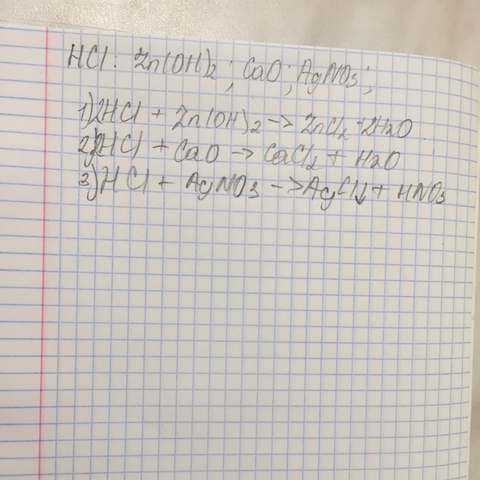 HCl: Zn(OH)2; CaO; AgNO3;
1) 2HCl + Zn(OH)2 -> ZnCl2 + 2H2O
2) 2HCl + CaO -> CaCl2 + H2O
3) HCl + AgNO3 -> AgCl↓ + HNO3